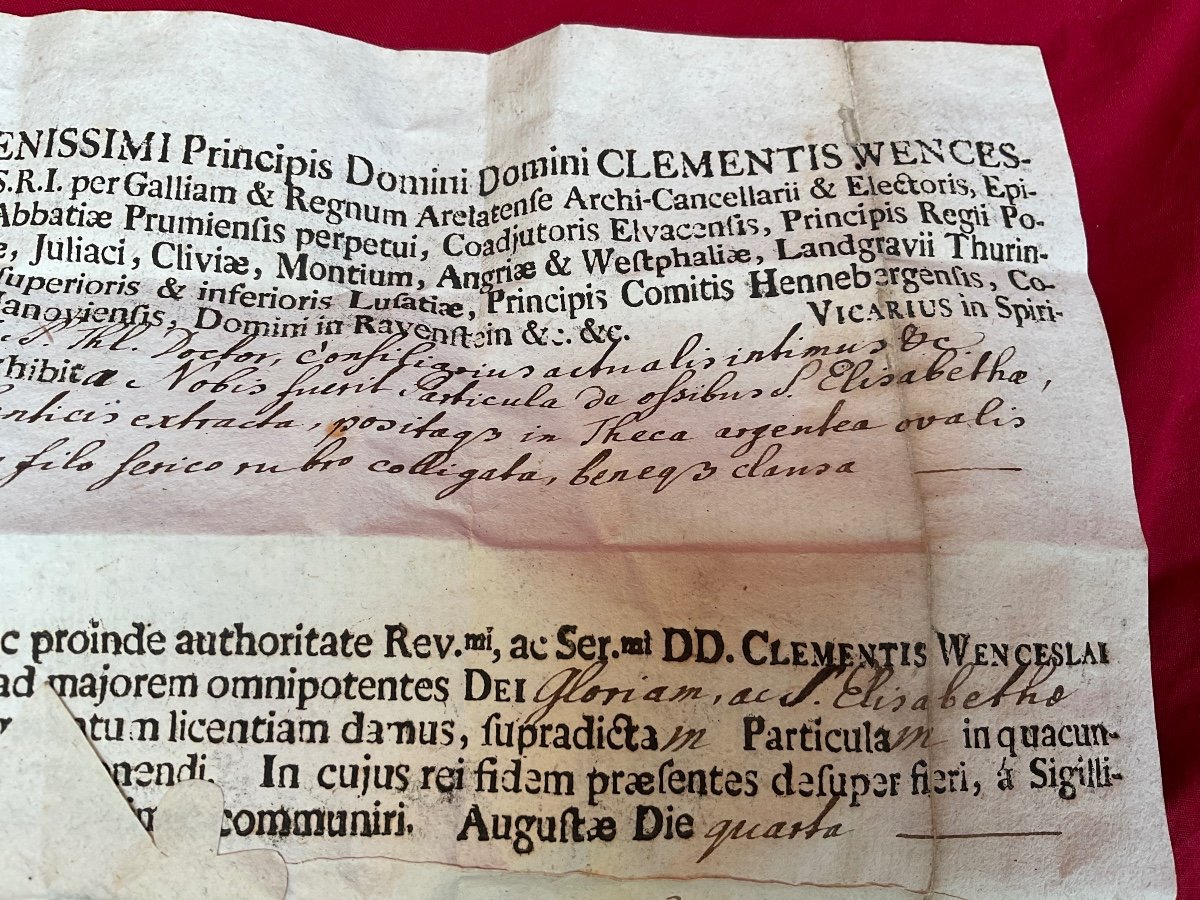 ENISSIMI Principis Domini Domini CLEMENTIS WENCES-
S.R.I. per Galliam & Regnum Arelatenſe Archi-Cancellarii & Electoris, Epi-
Abbatiæ Prumienſis perpetui, Coadjutoris Elvacenſis, Principis Regii Po-
e, Juliaci, Cliviæ, Montium, Angriæ & Weſtphaliæ, Landgravii Thurin-
ſuperioris & inferioris Luſatiæ, Principis Comitis Hennebergenſis, Co-
anoyienſis, Domini in Ravenſtein &c. &c. VICARIUS in Spiri-
S. Thl. Doctor, Consiliarius actualis intimus &c
hibita Nobis fuerit Particula de ossibus S. Elisabethæ,
enticis extracta, positaqз in Theca argentea ovalis
filo serico rubro colligata, beneqз clausa
c proinde authoritate Rev.mi, ac Ser.mi DD. CLEMENTIS WENCESLAI
ad majorem omnipotentes DEI Gloriam, ac S. Elisabethæ
tum licentiam damus, ſupradictam Particulam in quacun-
nendi. In cujus rei fidem præſentes deſuper fieri, á Sigilli-
communiri. Auguſtæ Die quarta